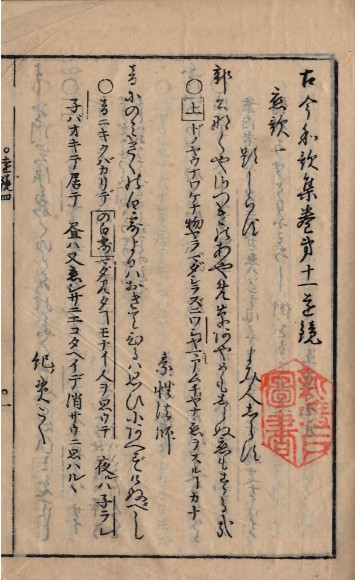 古今和歌集巻第十一遠鏡
恋歌一
題しらず　よみ人しらず
郭公なくやさつきのあやめ草あやめもしらぬ恋もする哉
○上ドノヤウナワケナ物ヤラマダシラズニワシヤマアムチヤナ恋ヲスルコトカナ
素性法師
音にのみきくの白露よるはおきてひるは思ひにあへずけぬべし
○音ニキクバカリデの白露マダアルタコトモナイ人ヲ思ウテ　夜ルハ子ラレ
子バオキテ居テ　昼ハ又サニエコタヘイデ消サウニ思ハルヽ
紀貫之
遠鏡四
圖書